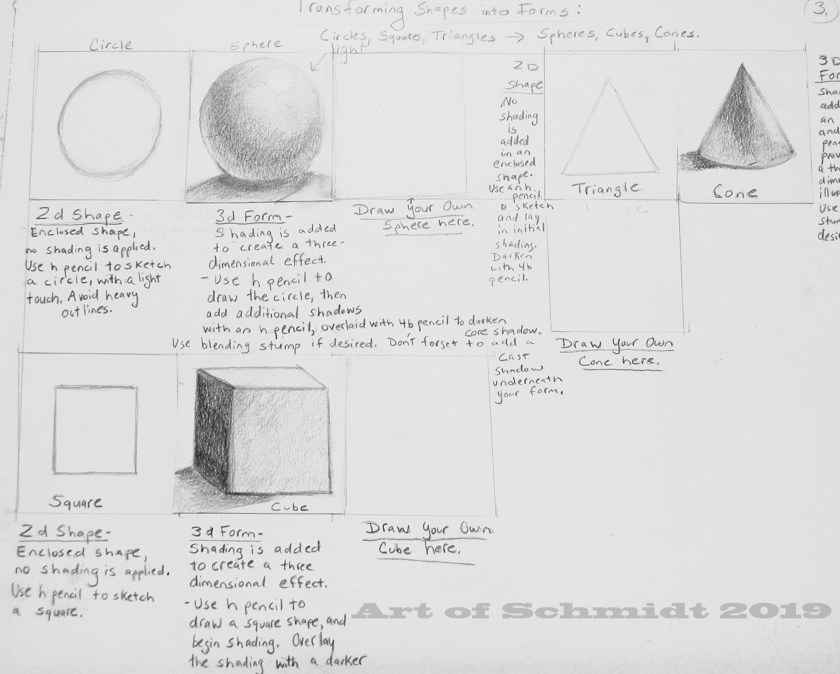 Transforming Shapes into Forms:
3.
Circles, Squares, Triangles → Spheres, Cubes, Cones.
Circle
Sphere
light
2d Shape-
Enclosed shape,
no shading is applied.
Use h pencil to sketch
a circle, with a light
touch. Avoid heavy
outlines.
3d Form-
Shading is added
to create a three-
dimensional effect.
- Use h pencil to
draw the circle, then
add additional shadows
with an h pencil, overlaid with 4b pencil to darken
core shadow.
Use blending stump if desired. Don't forget to add a
cast
shadow
underneath
your form.
Draw Your Own
Sphere here.
2D
Shape
No
shading
is
added
in an
enclosed
shape.
Use an h
pencil
to sketch
and lay
in initial
shading.
Darken
with 4b
pencil.
Triangle
Cone
Draw Your Own
Cone here.
3D
For
Sha
add
an
and
pen
prov
a th
dime
illu
Use
stum
desi
Square
Cube
2d Shape-
Enclosed shape,
no shading is applied.
Use h pencil to sketch
a square.
3d Form-
Shading is added
to create a three
dimensional effect.
- Use h pencil to
draw a square shape, and
begin shading. Overlay
the shading with a darker
Draw Your Own
Cube here.
Art of Schmidt 2019